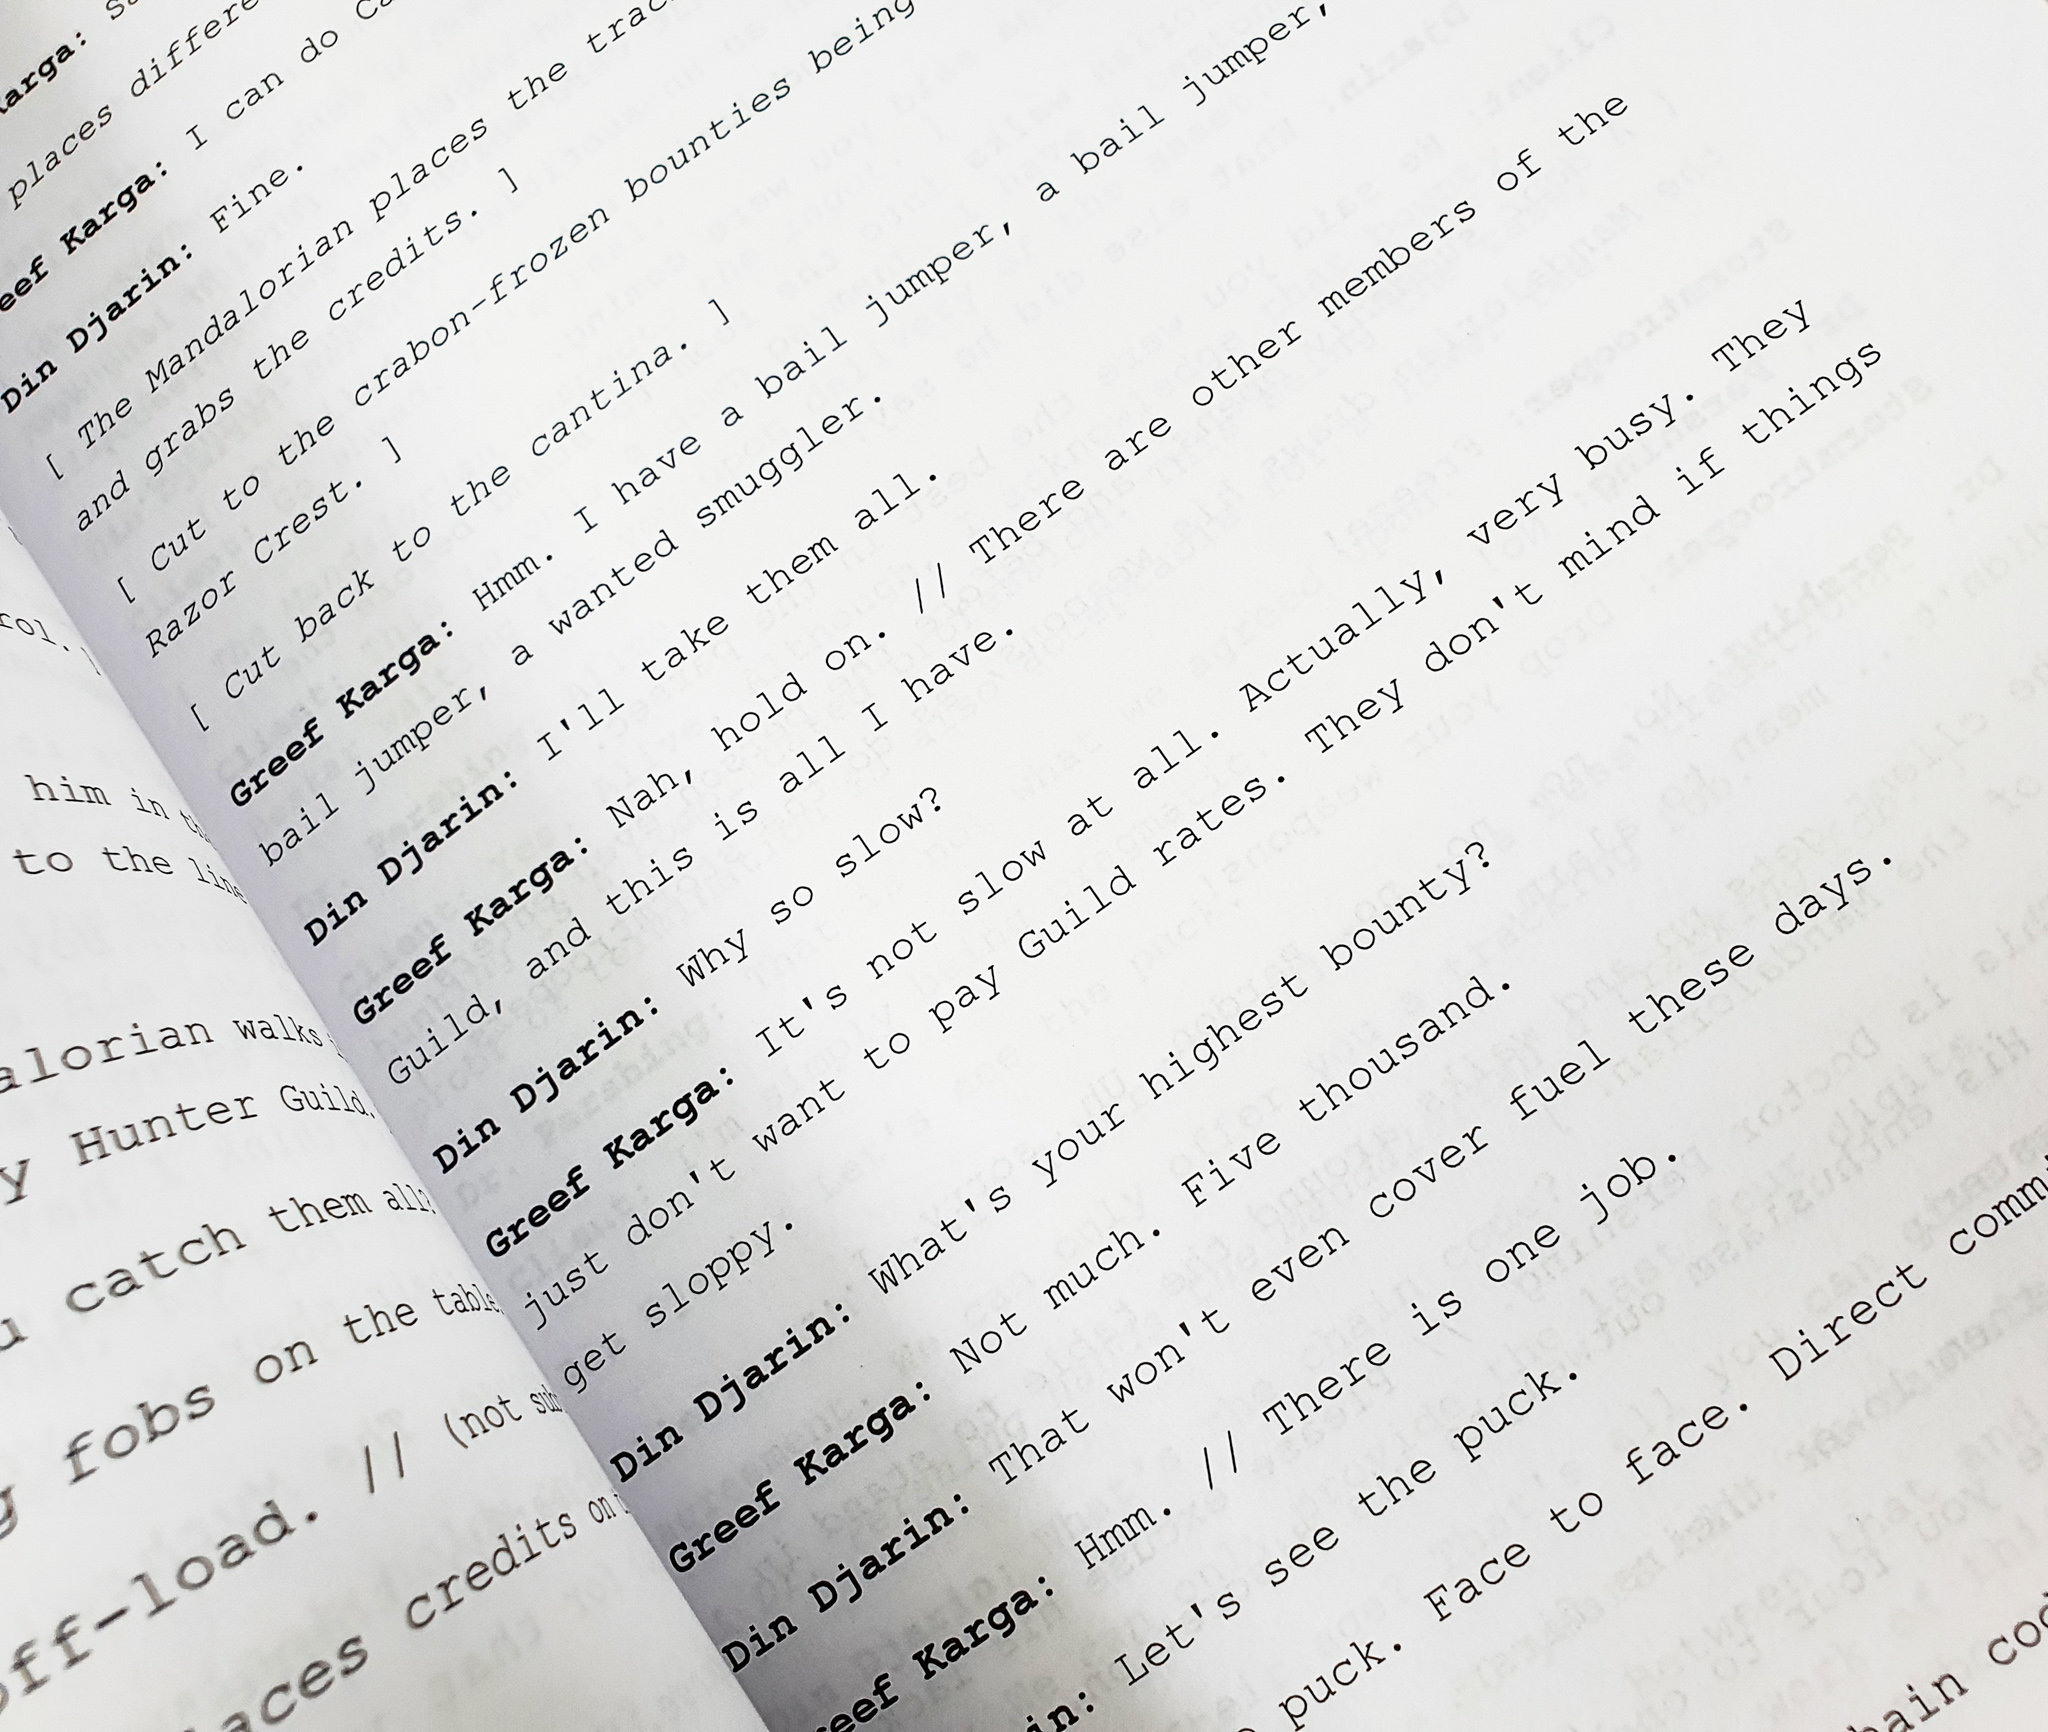 rol. ]
him in
to the
alorian walks
y Hunter Guild.
u catch them all?
g fobs on the table
off-load. // (not
aces credits on
Karga:
places
eef Karga: I can do
Din Djarin: Fine.
[ The Mandalorian places the
and grabs the credits. ]
[ Cut to the crabon-frozen bounties being
Razor Crest. ]
[ Cut back to the cantina. ]
Greef Karga: Hmm. I have a bail jumper, a bail jumper,
bail jumper, a wanted smuggler.
Din Djarin: I'll take them all.
Greef Karga: Nah, hold on. // There are other members of the
Guild, and this is all I have.
Din Djarin: Why so slow?
Greef Karga: It's not slow at all. Actually, very busy. They
just don't want to pay Guild rates. They don't mind if things
get sloppy.
Din Djarin: What's your highest bounty?
Greef Karga: Not much. Five thousand.
Din Djarin: That won't even cover fuel these days.
reef Karga: Hmm. // There is one job.
in: Let's see the puck.
puck. Face to face. Direct
hain